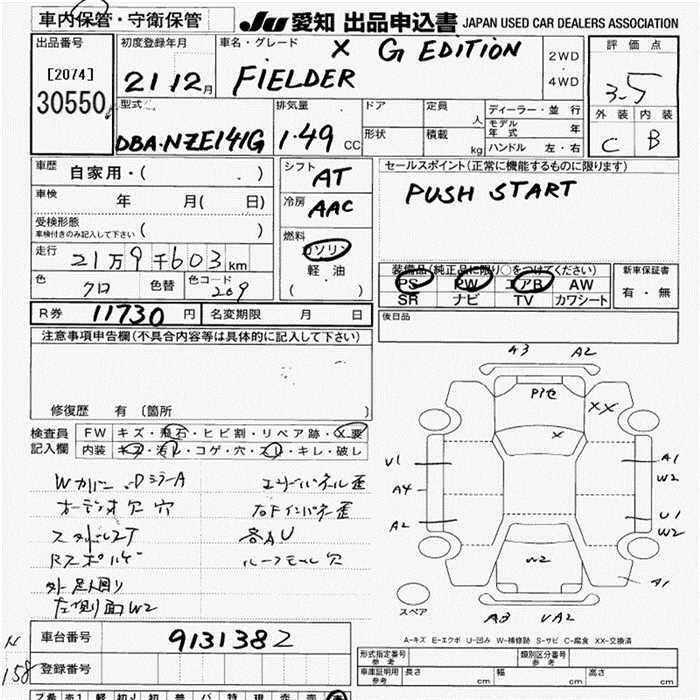 車内保管・守衛保管
JU 愛知 出品申込書 JAPAN USED CAR DEALERS ASSOCIATION
出品番号
[2074]
30550
初度登録年月
21 12月
車名・グレード
X G EDITION
FIELDER
2WD
・
4WD
評価点
3.5
外装 内装
C B
型式
DBA-NZE141G
排気量
1.49 CC
ドア
形状
定員
人
積載
kg
ディーラー・並行
モデル年式 年
ハンドル 左・右
車歴
自家用・( )
車検
年 月( 日)
受検形態
車検付きのみ記入して下さい ( )
走行
21万9千603km
色
クロ
色替
色コード
209
シフト
AT
冷房
AAC
燃料
ガソリン
軽油
( )
セールスポイント(正常に機能するものに限ります)
PUSH START
装備品(純正品に限り○をつけてください)
PS PW エアB AW
SR ナビ TV カワシート
新車保証書
有・無
R券 11730 円
名変期限 月 日
後日品
注意事項申告欄(不具合内容等は具体的に記入して下さい)
修復歴 有 〔箇所 〕
検査員
記入欄
FW キズ・飛石・ヒビ割・リペア跡・X要
内装 キズ・汚れ・コゲ・穴・スレ・キレ・破レ
Wカバー DミラーA
オーディオ欠 穴
エンジンパネル歪
右Fインパネ歪
各AU
ルーフモール欠
左側面W2
A3 A2
XX
X
U1
A4
A2
A1
W2
U1
W2
W2
A1
A3 UA2
スペア
A-キズ E-エクボ U-凹み W-補修跡 S-サビ C-腐食 XX-交換済
車台番号
9131382
登録番号
158
形式指定番号
参考
類別区分番号
参考
車庫証明用
参考
長さ cm
幅 cm
高さ cm